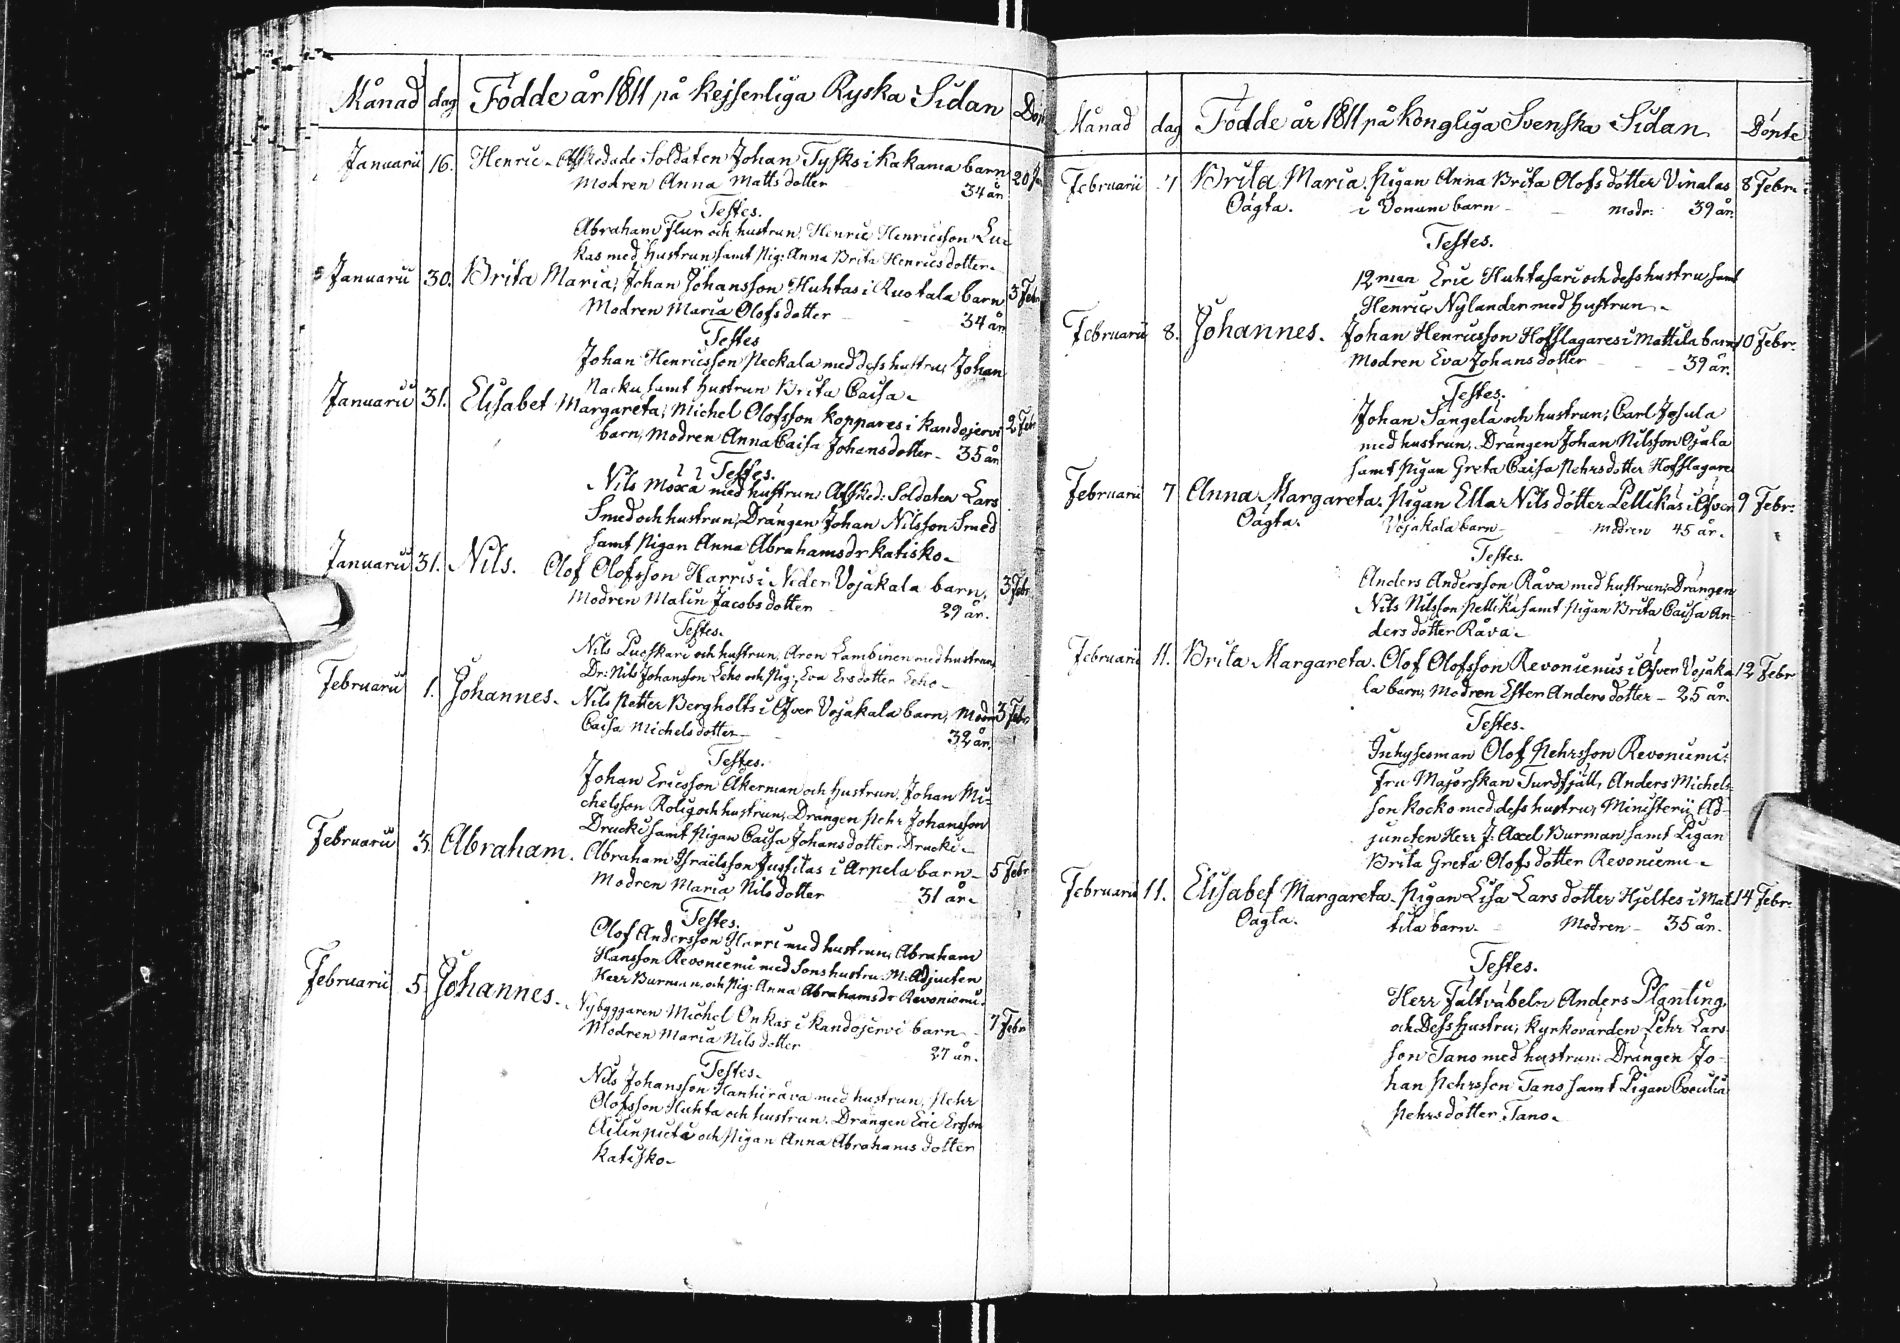 Månad dag Födde år 1811 på Kejserliga Ryska Sidan
Januarii 16. Henric. Afskedade Soldaten Johan Tysks i Kakama barn 20
Modren Anna Matts dotter 34 år
Testes.
Abraham Flur och hustrun, Henric Henricsson Lu-
kas med Hustrun samt Pig: Anna Brita Henrics dotter.
Januarii 30. Brita Maria, Johan Johansson Huhtas i Ruotala barn 3 Febr
Modren Maria Olofs dotter - 34 år
Testes
Johan Henricsson Peckala med dess hustru, Johan
Nacku samt Hustrun Brita Caisa.
Januarii 31. Elisabet Margareta, Michel Olofsson Koppares i Kandojervi 2 Febr
barn, Modren Anna Caisa Johans dotter - 35 år
Testes.
Nils Moxa med hustrun, Afsked: Soldaten Lars
Smed och hustrun, Drängen Johan Nilsson Smed
samt Pigan Anna Abrahams dr Katisko.
Januarii 31. Nils. Olof Olofsson Harris i Neder Vojakala barn. 3 Febr
Modren Malin Jacobs dotter 29 år.
Testes.
Nils och hustrun, Aron Lambinen med hustrun,
Dr: Nils Johansson Leho och Pig: Eva Ers dotter Leho.
Februarii 1. Johannes. Nils Petter Bergholts i Öfver Vojakala barn, Modr 3 Febr
Caisa Michels dotter - 32 år.
Testes.
Johan Ericsson Åkerman och Hustrun, Johan Mi-
chelsson Rolig och hustrun, Drängen Pehr Johansson
Drucki samt Pigan Caisa Johans dotter Drucki.
Februarii 3. Abraham. Abraham Israelsson Jussilas i Arpela barn - 5 Febr
Modren Maria Nils dotter 31 år.
Testes.
Olof Andersson Harri med hustrun, Abraham
Hansson Revoniemi med Sons hustru, M: Adjuncten
Herr Burman, och Pig: Anna Abrahams dr Revoniemi.
Februarii 5. Johannes. Nybyggaren Michel Onkas i Kandojervi barn - 7 Febr
Modren Maria Nils dotter 27 år.
Testes.
Nils Johansson Hanhirova med hustrun, Pehr
Olofsson Huhta och hustrun. Drängen Eric Ersson
och Pigan Anna Abrahams dotter
Katisko.
Månad dag Födde år 1811 på Kongliga Svenska Sidan. Döpte
Februarii 7 Brita Maria. Pigan Anna Brita Olofs dotter Vinalas 8 Febr.
Oägta. i Vonum barn - modr: 39 år.
Testes.
12 man Eric Huhtasari och dess hustru, samt
Henric Nylander med Hustrun.
Februarii 8. Johannes. Johan Henricsson Hofslagares i Mattila barn 10 Febr.
Modren Eva Johans dotter - 39 år.
Testes.
Johan Sangela och hustrun; Carl Josula
med hustrun, Drängen Johan Nilsson Ojala
samt Pigan Greta Caisa Pehrs dotter Hofslagare
Februarii 7 Anna Margareta. Pigan Ella Nils dotter Pellikas i Öfver 9 Febr.
Oägta. Vojakala barn - Modren 45 år.
Testes.
Anders Andersson Råva med hustrun, Drängen
Nils Nilsson Pellika samt Pigan Brita Caisa An-
ders dotter Råva.
Februarii 11. Brita Margareta. Olof Olofsson Revoniemis i Öfver Vojaka 12 Febr
la barn, Modren Ester Anders dotter - 25 år.
Testes.
Olof Pehrsson Revoniemi,
Fru Majorskan Turdfjäll, Anders Michels-
son Kocko med dess hustru, Ministerii Ad-
juncten Herr J: Axel Burman, samt Pigan
Brita Greta Olofs dotter Revoniemi.
Februarii 11. Elisabet Margareta. Pigan Lisa Lars dotter Hjeltes i Mat 14 Febr.
Oägta. tila barn. Modren - 35 år.
Testes.
Herr Fältväbeln Anders Planting
och Dess Hustru; Kyrkovärden Pehr Lars-
son Tano med hustrun. Drängen Jo-
han Pehrsson Tano samt Pigan
Pehrs dotter Tano.